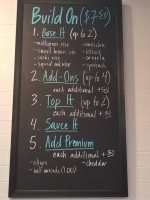 Build On ($7.50)
1. Base It (up to 2)
- multigrain rice
- sushi rice
- romaine
- spinach
2. Add-Ons (up to 4)
each additional +.50
3. Top It (up to 2)
each additional +.50
4. Sauce It
5. Add Premium
each additional +
- olives - cheddar
- half avocado (1.00)